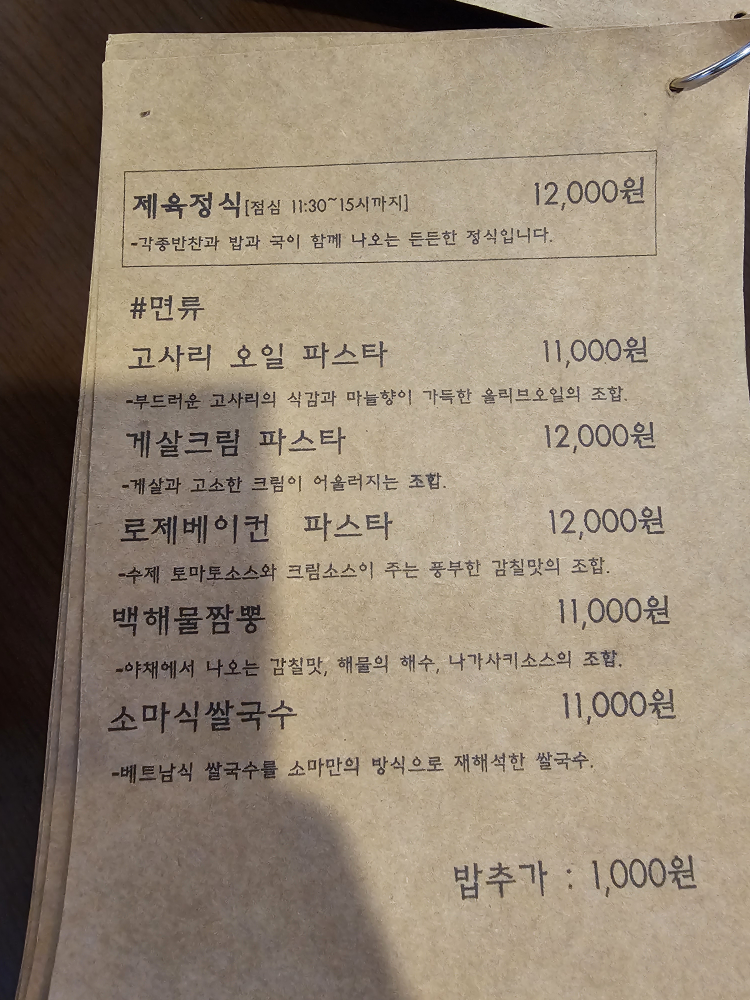 제육정식[점심 11:30~15시까지] 12,000원
-각종반찬과 밥과 국이 함께 나오는 든든한 정식입니다.
#면류
고사리 오일 파스타 11,000원
-부드러운 고사리의 식감과 마늘향이 가득한 올리브오일의 조합.
게살크림 파스타 12,000원
-게살과 고소한 크림이 어울러지는 조합.
로제베이컨 파스타 12,000원
-수제 토마토소스와 크림소스이 주는 풍부한 감칠맛의 조합.
백해물짬뽕 11,000원
-야채에서 나오는 감칠맛, 해물의 해수, 나가사키소스의 조합.
소마식쌀국수 11,000원
-베트남식 쌀국수를 소마만의 방식으로 재해석한 쌀국수.
밥추가 : 1,000원